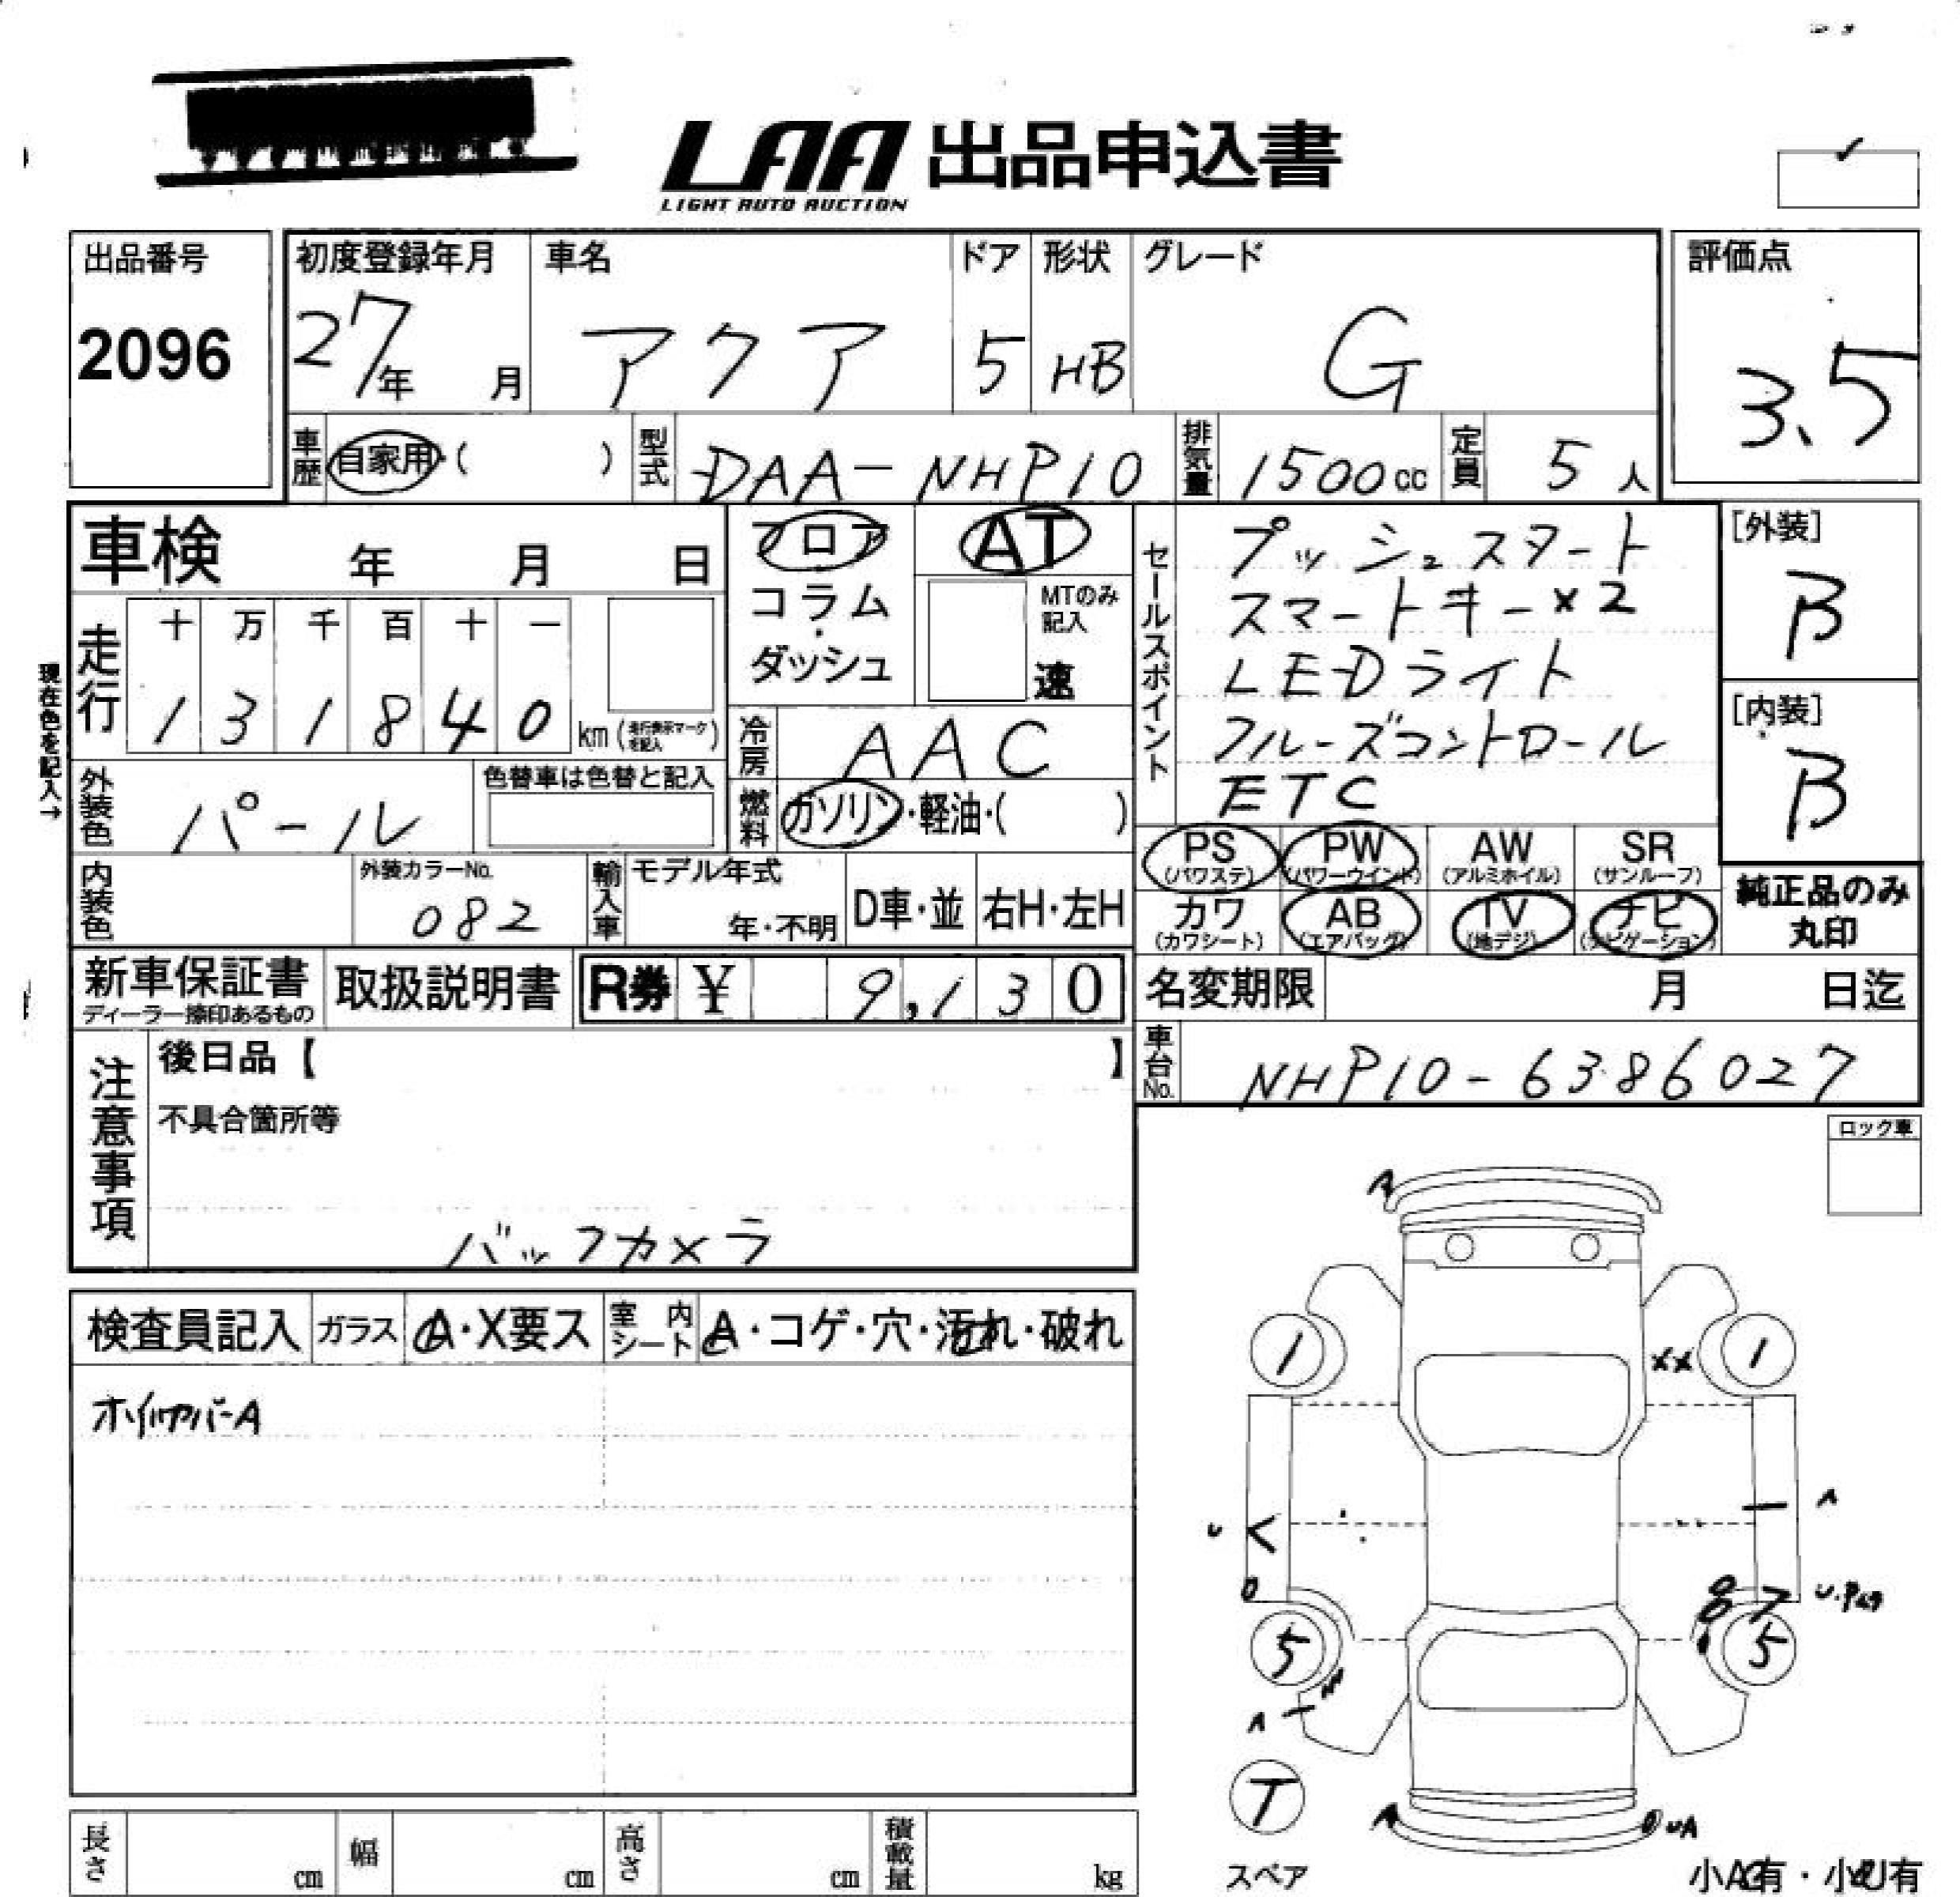 LAA 出品申込書
LIGHT AUTO AUCTION
出品番号
2096
初度登録年月
27年 月
車名
アクア
ドア
5
形状
HB
グレード
G
評価点
3.5
車歴 自家用・( )
型式 DAA-NHP10
排気量 1500cc
定員 5人
車検 年 月 日
フロア
コラム
・
ダッシュ
AT
MTのみ
記入
速
セールスポイント
プッシュスタート
スマートキー×2
LEDライト
クルーズコントロール
ETC
[外装]
B
[内装]
B
現在色を記入→
走行
十 万 千 百 十 一
1 3 1 8 4 0 km (走行表示マークを記入)
冷房 AAC
燃料 ガソリン・軽油・( )
外装色 パール
色替車は色替と記入
内装色
外装カラーNo.
082
輸入車
モデル年式
年・不明
D車・並
右H・左H
PS
(パワステ)
PW
(パワーウインド)
AW
(アルミホイル)
SR
(サンルーフ)
カワ
(カワシート)
AB
(エアバッグ)
TV
(地デジ)
ナビ
(ナビゲーション)
純正品のみ
丸印
新車保証書
ディーラー捺印あるもの
取扱説明書
R券 ¥ 9,130
名変期限 月 日迄
車台No. NHP10-6386027
注意事項
後日品【 】
不具合箇所等
バックカメラ
ロック車
検査員記入
ガラス A・X要ス
室内シート A・コゲ・穴・汚れ・破れ
ホイルカバーA
A
1
××
1
U
A
5
5
A
T
スペア
A
UA
小A有・小U有
長さ cm
幅 cm
高さ cm
積載量 kg